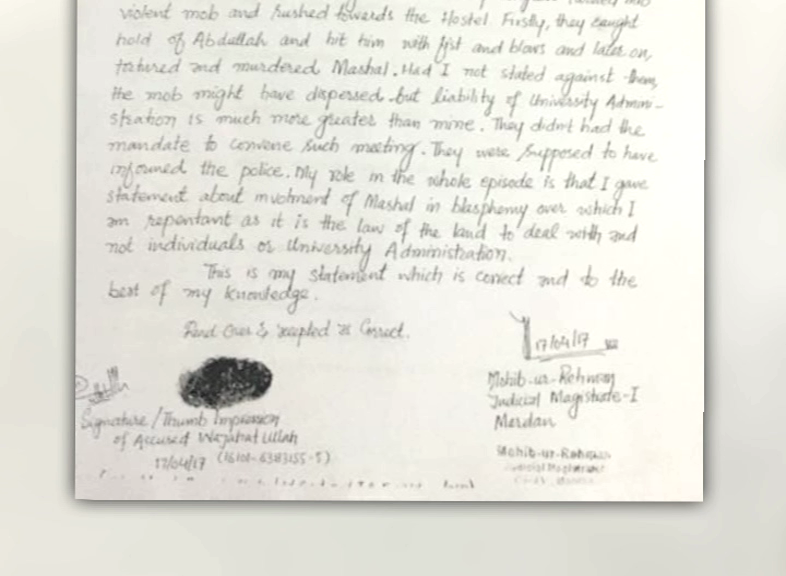 violent mob and rushed towards the Hostel. Firstly, they caught
hold of Abdullah and hit him with fist and blows and later on,
tortured and murdered Mashal. Had I not stated against them,
the mob might have dispersed but liability of University Admini-
stration is much more greater than mine. They didn't had the
mandate to convene such meeting. They were supposed to have
informed the police. My role in the whole episode is that I gave
statement about involment of Mashal in blasphemy over which I
am repentant as it is the law of the land to deal with and
not individuals or University Administration.
This is my statement which is correct and to the
best of my knowledge.
Read Over & accepted as Correct.
17/04/17
Mohib-ur-Rehman
Judicial Magistrate-I
Mardan
Mohib-ur-Rehman
Judicial Magistrate
Signature/Thumb Impression
of Accused Wajahat Ullah
17/04/17 (16101-6383155-5)